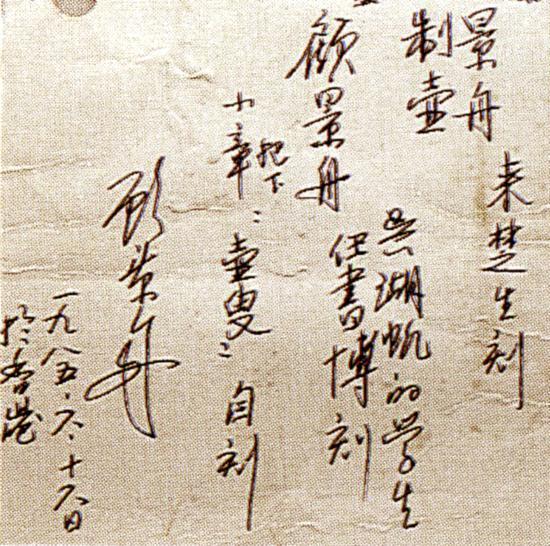 景舟
制壶
来楚生刻
顾景舟
吴湖帆的学生
任书博刻
小章 把下 "壶叟" 自刻
顾景舟
一九八五.六.十六日
於香港